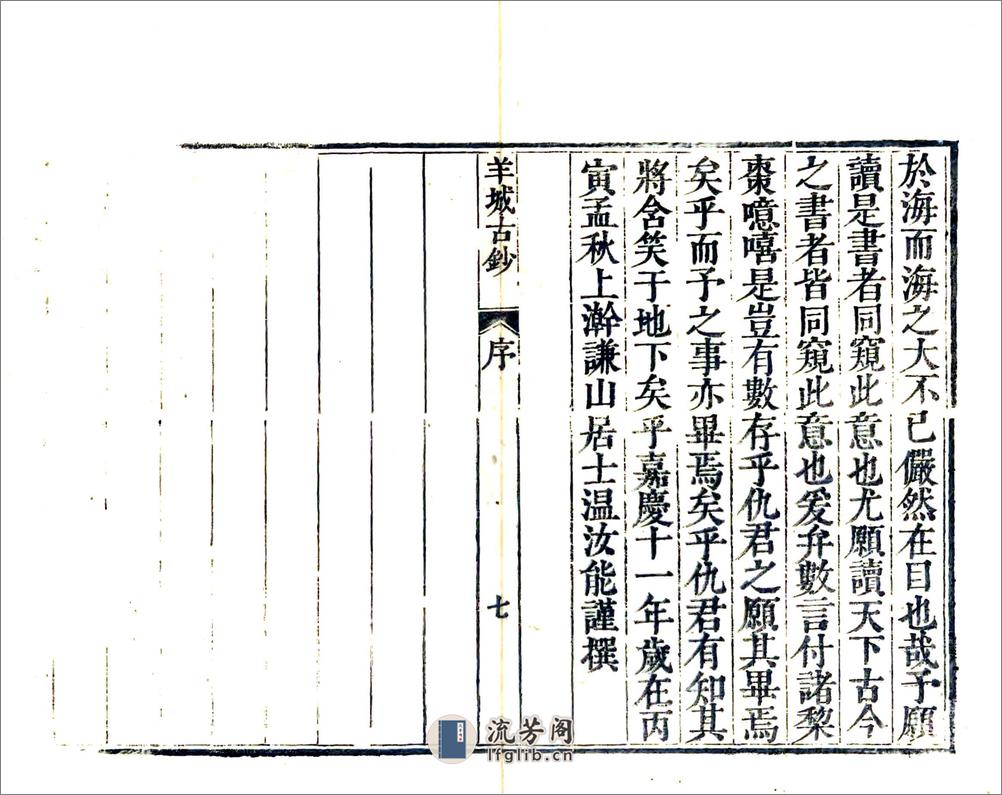 於海而海之大不已儼然在目也哉予願
讀是書者同窺此意也尤願讀天下古今
之書者皆同窺此意也爰弁數言付諸棃
棗噫嘻是豈有數存乎仇君之願其畢焉
矣乎而予之事亦畢焉矣乎仇君有知其
將含笑于地下矣乎嘉慶十一年歲在丙
寅孟秋上澣謙山居士温汝能謹撰
羊城古鈔
序
七
流芳阁
lfglib.cn